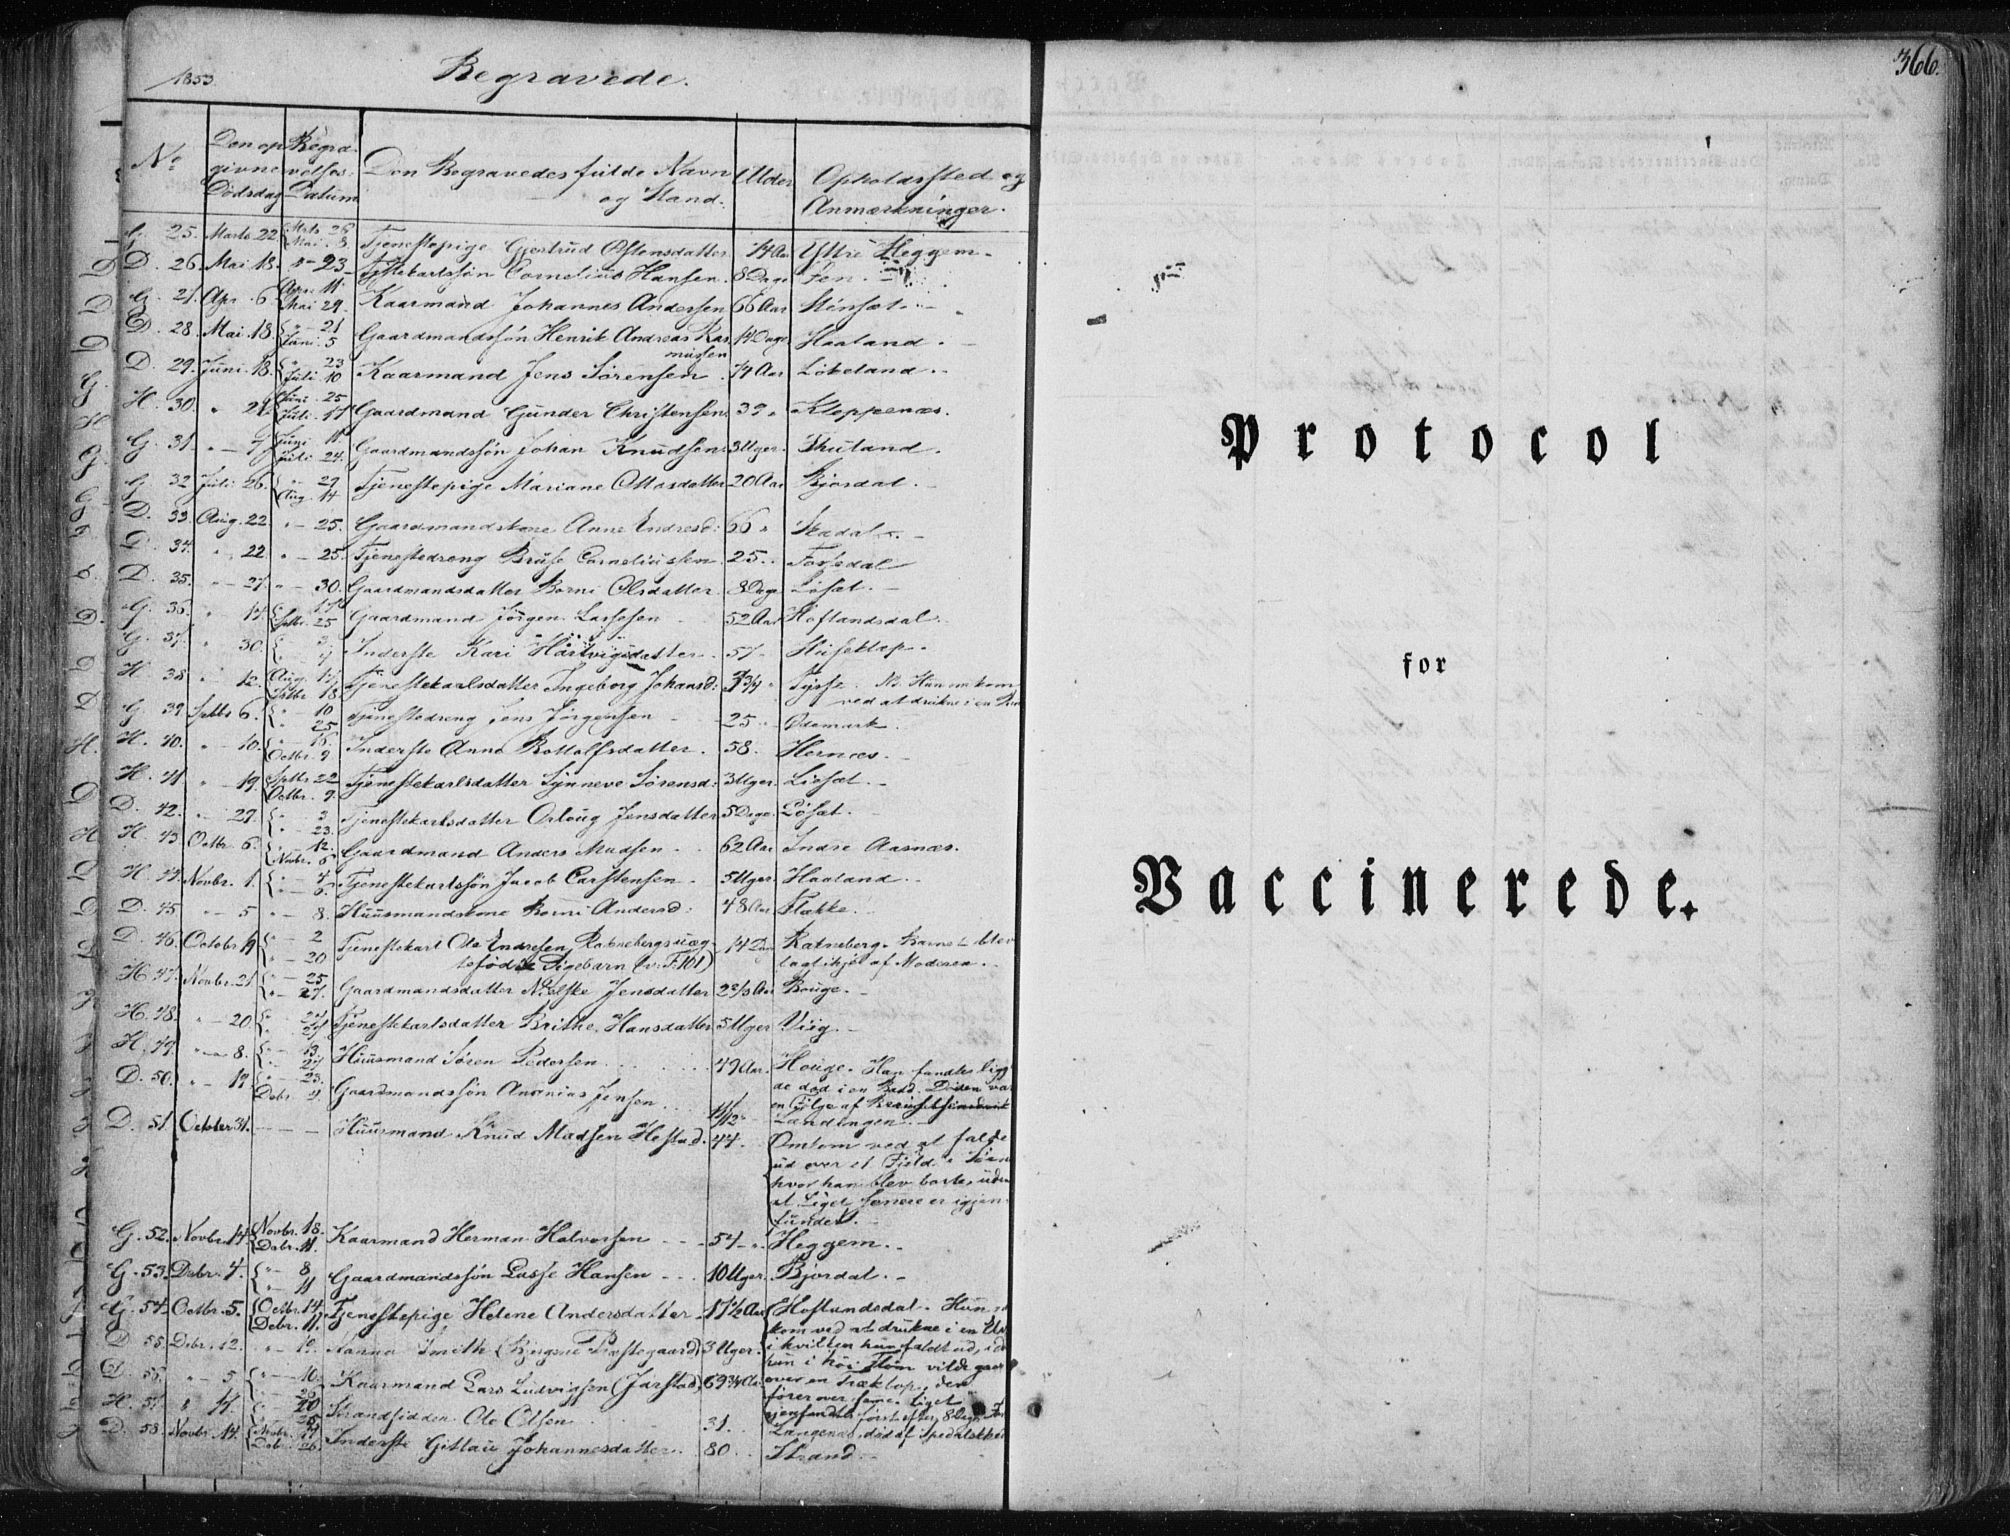 1853.
Begravede.
No
Den opgivne Dødsdag
Begravelses: Datum
Den Begravedes fulde Navn og Stand.
Alder
Opholdssted og Anmærkninger.
G. 25. Marts 22. Marts 26 Mai. 8. Tjenestepige Gjertrud Østensdatter 74 Aar Yttre Heggem.
D. 26. Mai 18. " - 23 Tjenestekarlssøn Cornelius Hansen. 8 Dage
G. 27. Apr. 6 Apr. 11. Mai 29. Kaarmand Johannes Andersen 66 Aar Stensæt.
D. 28. Mai. 18. " - 21 Juni. 5 Gaardmandssøn Henrik Andreas Ras- 14 Dage Haaland.
mussen
D. 29. Juni. 18. " 23 Juli 10 Kaarmand Jens Sørensen. 74 Aar Løkeland.
H. 30. " 21 Juni 25 Juli. 17 Gaardmand Gunder Christensen. 39 " Kleppenæs.
G. 31. " - 7 Juni 11. Juli 24. Gaardmandssøn Johan Knudsen. 3 Uger.
G. 32 Juli. 26. " - 29 Aug. 14 Tjenestepige Mariane Ottosdatter 20 Aar Bjordal.
D. 33. Aug. 22. " - 25. Gaardmandskone Anne Endresd: 66 " Stadal.
D. 34. " 22 " - 25. Tjenestedreng Brüse Corneliussen. 25. Forsedal
D. 35. " - 27. " - 30. Gaardmandsdatter Borni Olsdatter. 8 Dage Løset.
G. 36. " 14. " 17 Septbr. 25 Gaardmand Jørgen Lassesen 52 Aar Hoftandsdal.
G. 37. " 30. Inderste Kari Hartvigsdatter. 57.
H. 38 " 12. Aug. 17 Septbr. 18 Tjenestekarlsdatter Ingeborg Johansd: 1 3/4 " Tysse. NB. Hun omkom
ved at drukne i en
G. 39 Septbr 6. " - 10 " 25 Tjenestedreng Jens Jørgensen 25 Odemark.
H. 40. " - 10. " - 16. Octbr. 9 Inderste Anna Bottolfsdatter. 58. Hernæs.
H. 41 " 19. Septbr 22 Octbr. 9. Tjenestekarlsdatter Synneve Sørensd. 3 Uger. Liesæt.
D. 42. " 27. " 3 " - 23. Tjenestekarlsdatter Orloug Jensdatter 5 Dage. Løset.
H. 43. Octbr. 6. " - 12. Novbr. 6 Gaardmand Anders Madsen 62 Aar Indre Aasnæs.
H. 44. Novbr. 1. " - 4. " - 6. Tjenestekarlssøn Jacob Carstensen 5 Uger. Haaland.
D. 45 " - 5 " - 8. Huusmandskone Borni Andersd: 48 Aar Flække.
D. 46. Octobr 19 " - 2 " - 20 Tjenestekarl Ole Endresen Ratnebergs uæg- 14 Dage Ratneberg. Barnet blev
tefødte Pigebarn (v. F. 101) taget ihjel af Moderen.
H. 47. Novbr. 21 " - 25 " - 27. Gaardmandsdatter Nielske Jensdatter 2 2/3 Aar Bouge.
H. 48. " - 20. " - 27 Tjenestekarlsdatter Brithe Hansdatter 5 Uger Viig.
H. 49. " 8. " - 13. " 27 Huusmand Søren Pedersen 49 Aar. Houge. Han fandtes ligg-
de død i en Baad. Døden var
en Følge af
D. 50. " - 19. " - 23. Debr. 4. Gaardmandssøn Ananias Jensen 11/12 Landingen.
D. 51. October 31. Huusmand Knud Madsen Hestad. 44. Omkom ved at falde
ud over et Fjeld i Søen
hvor han blev borte, uden
at Liget senere er igjen-
fundet.
G. 52. Novbr. 14 Novbr. 18. Debr. 11. Kaarmand Herman Halvorsen 54 Heggem.
G. 53. Debr. 4. " - 8 " 11 Gaardmandssøn Lasse Hansen 10 Uger. Bjordal.
G. 54. Octbr. 5. Octbr. 14. Debr. 11. Tjenestepige Helene Andersdatter 17 1/2 Aar Hoflandsdal. Hun
kom ved at drukne i en Elv
i hvilken hun faldt ud, idet
hun i høi Flom vilde gaae
over en Trækløp, der
fører over samme. Liget
igjenfandtes først efter 8 Dage
D. 55. Debr. 12. " - 19. Nanna Smith (Rjngene Præstegaard) 3 Uger.
D. 56. " - 5 " - 10. Kaarmand Lars Ludvigsen (Jarstad) 69 3/4 Aar
H. 57. " 14. " - 20 " 25 Strandsidder Ole Olsen 31. Langenæs, død af Spedalskhed
D. 58. Novbr. 14. Novbr. 19 Debr. 26. Inderste Gittau Johannesdatter. 80 Strand.
366.
Protocol
for
Vaccinerede.